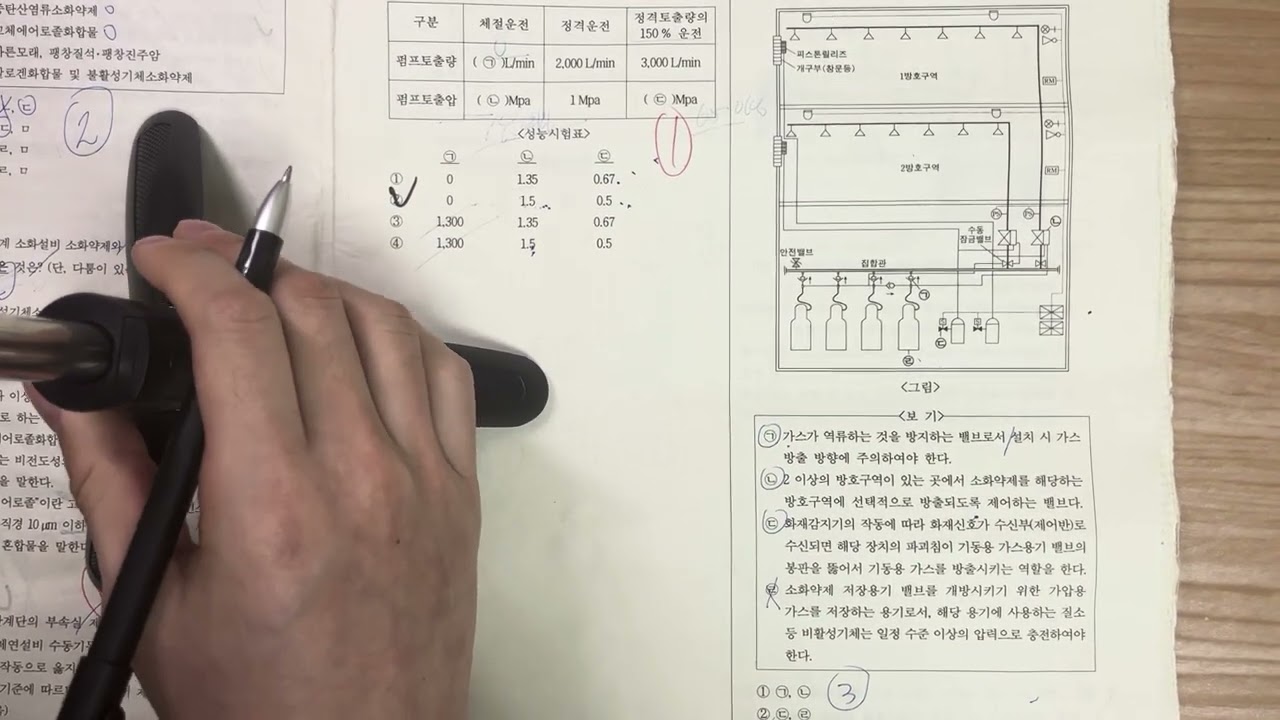 중탄산염류소화약제
고체에어로졸화합물
마른모래, 팽창질석·팽창진주암
할로겐화합물 및 불활성기체소화약제
ㄷ, ㅁ
ㄹ, ㅁ
ㄹ, ㅁ
2
소화설비 소화약제와
것은? (단, 다툼이 있
이상
로 하는
에어로졸화합
는 비전도성
을 말한다.
어로졸"이란 고
직경 10㎛ 이하
혼합물을 말한다
계단의 부속실 제
제연설비 수동기
작동으로 옳지
기준에 따르
구분 체절운전 정격운전 정격토출량의 150% 운전
펌프토출량 ( ㉠ )L/min 2,000 L/min 3,000 L/min
펌프토출압 ( ㉡ )Mpa 1 Mpa ( ㉢ )Mpa
<성능시험표>
1
㉠ ㉡ ㉢
① 0 1.35 0.67
② 0 1.5 0.5
③ 1,300 1.35 0.67
④ 1,300 1.5 0.5
피스톤릴리즈
개구부(창문등)
1방호구역
RM
2방호구역
RM
PS
PS
㉡
수동
잠금밸브
안전밸브
집합관
㉠
S
S
㉢
㉣
<그림>
<보 기>
㉠ 가스가 역류하는 것을 방지하는 밸브로서 설치 시 가스
방출 방향에 주의하여야 한다.
㉡ 2 이상의 방호구역이 있는 곳에서 소화약제를 해당하는
방호구역에 선택적으로 방출되도록 제어하는 밸브다.
㉢ 화재감지기의 작동에 따라 화재신호가 수신부(제어반)로
수신되면 해당 장치의 파괴침이 기동용 가스용기 밸브의
봉판을 뚫어서 기동용 가스를 방출시키는 역할을 한다.
㉣ 소화약제 저장용기 밸브를 개방시키기 위한 가압용
가스를 저장하는 용기로서, 해당 용기에 사용하는 질소
등 비활성기체는 일정 수준 이상의 압력으로 충전하여야
한다.
① ㉠, ㉡
3
② ㉢, ㉣